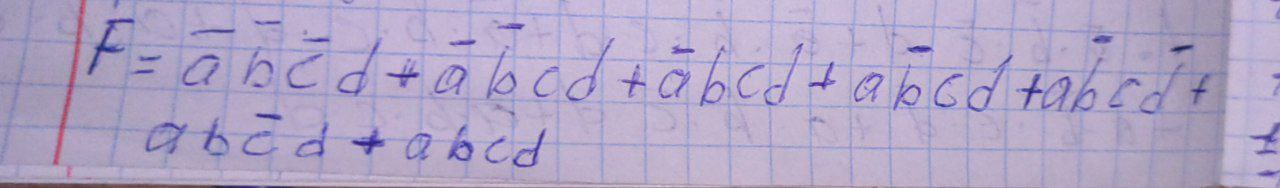 F = a̅ b̅ c̅ d + a̅ b̅ c d + a̅ b c d + a b̅ c d + a b̅ c d̅ +
a b c̅ d + a b c d